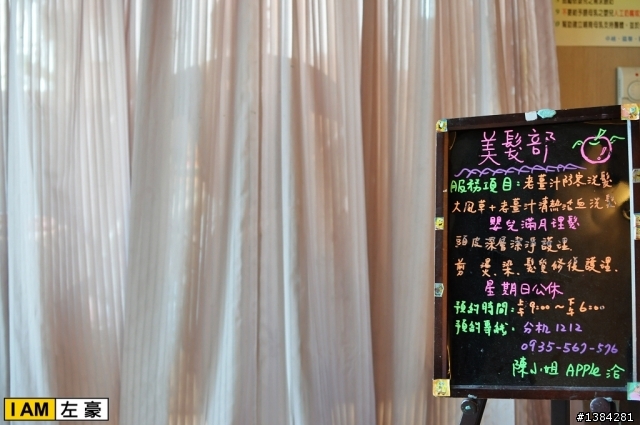 美髮部
服務項目:老薑汁防寒洗髮
大風草+老薑汁清熱祛血洗髮
嬰兒滿月理髮
頭皮深層潔淨護理
剪、燙、染、髮質修復護理.
星期日公休
預約時間:上午9:00~下午6:00
預約專線:分机1212
0935-567-576
陳小姐 APPle 洽
I AM 左豪
#1384281